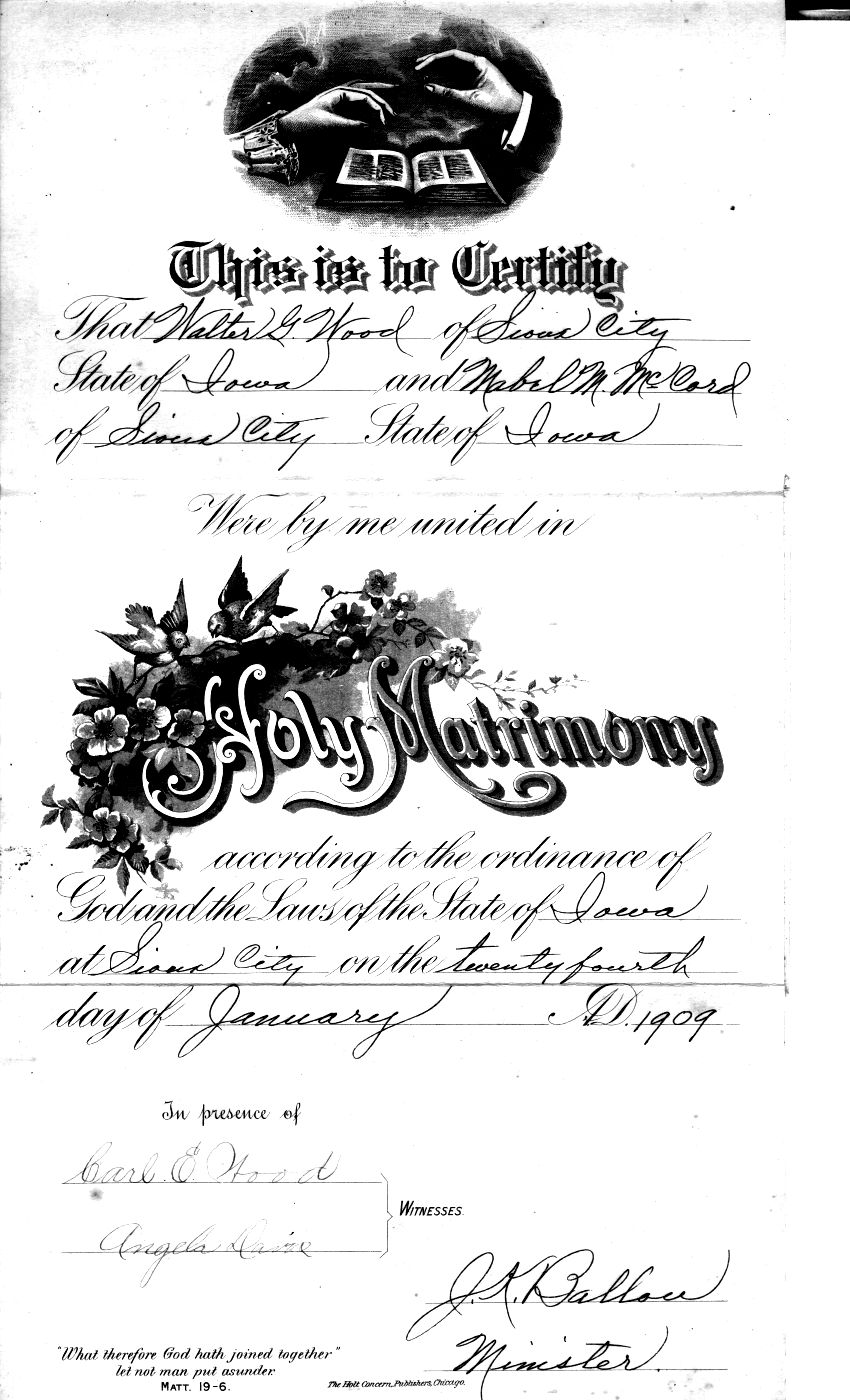 This is to Certify
That Walter G. Wood of Sioux City
State of Iowa and Mabel M. McCord
of Sioux City State of Iowa
Were by me united in
Holy Matrimony
according to the ordinance of
God and the Laws of the State of Iowa
at Sioux City on the twenty fourth
day of January A.D. 1909
In presence of
Carl E. Wood
WITNESSES.
Angela
J. K. Ballou
Minister.
"What therefore God hath joined together"
let not man put asunder.
MATT. 19-6.
The Holt Concern, Publishers, Chicago.